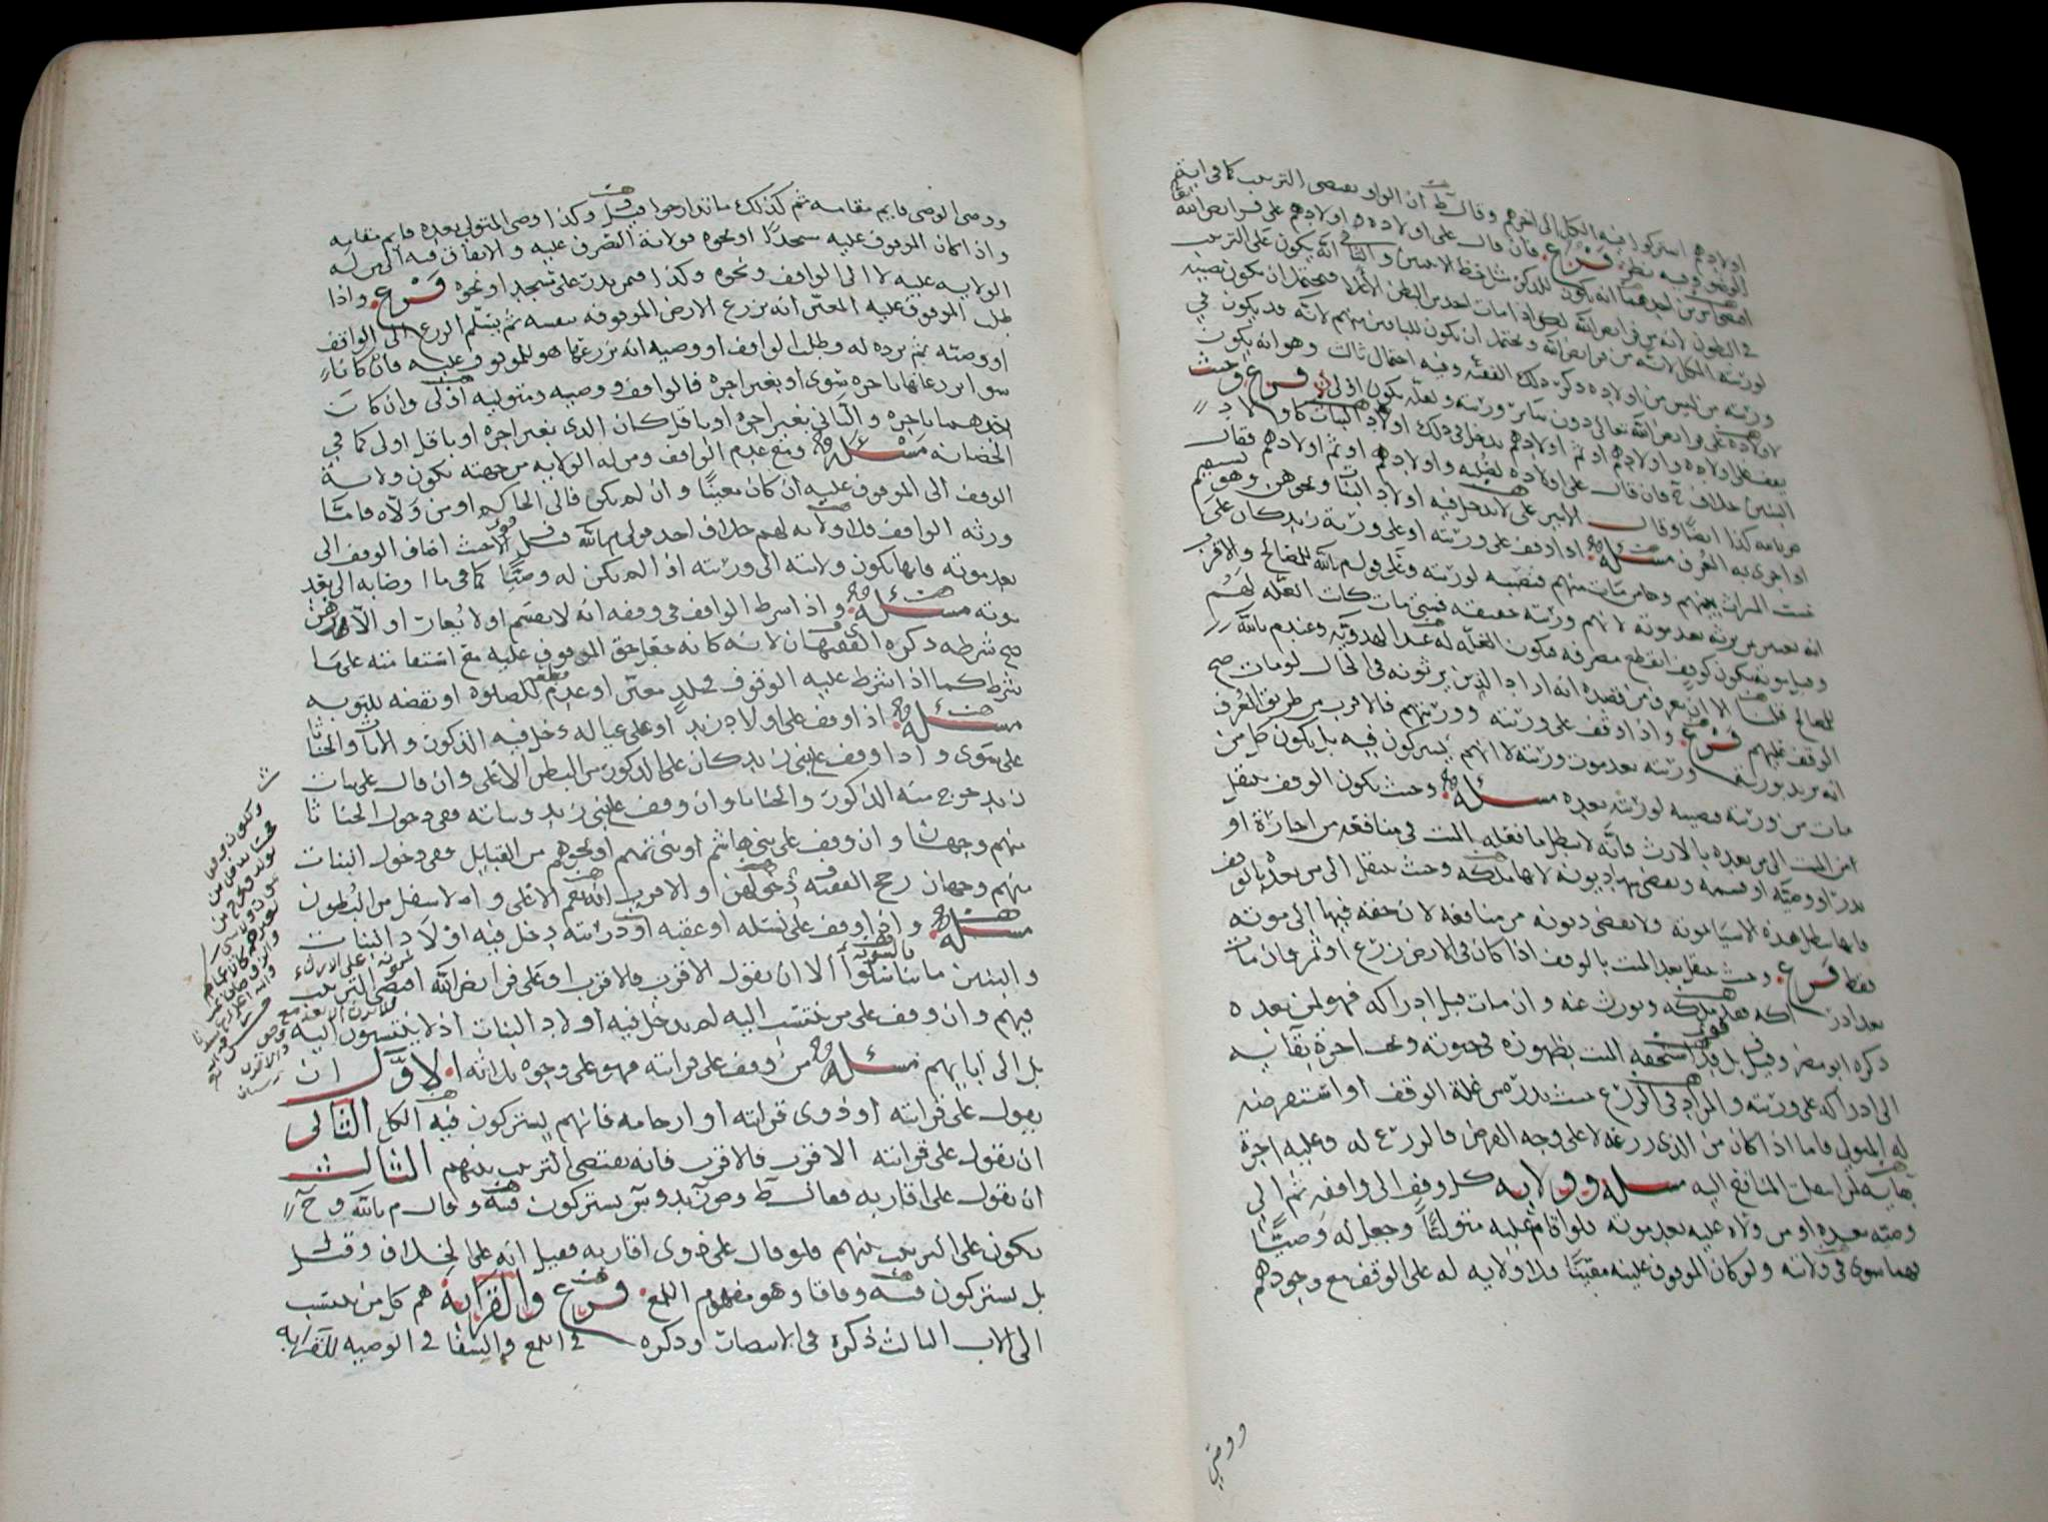 اولادهم اشتركوا فيه الكل الى اخرهم وقال ط ان الواو يقتضي الترتيب كما في ايتم
الوضوء وفيه نظر فرع فان قال على اولاده واولادهم على فرايض الله
في البطون لانه من فرايض الله لكن اذا مات احد من البطن الاعلا فيحتمل ان يكون نصيبه
لورثته الكل لانه من فرايض الله ويحتمل ان يكون للباقين منهم لانه قد يكون في
ورثته من ليس من اولاده ذكر ذلك الفقيه وفيه احتمال ثالث وهو انه يكون
لاولاده على فرايض الله تعالى دون سائر ورثته ولعله يكون اولى فرع وحيث
يقف على اولاده واولادهم او ثم اولادهم يدخل في ذلك اولاد البنات كاولاد
البنين خلاف ح فان قال على اولاده لصلبه واولادهم او ثم اولادهم فقال
ض يامه كذا ايضا وقال الامير علي لا يدخل فيه اولاد البنات ونحوهن وهو
اذا جرى به العرف مسئلة اذا وقف على ورثته او على ورثة زيد كان على
حسب الميراث بينهم ومن مات منهم فنصيبه لورثته وعلى قول م بالله للمصالح والاقرب
انه يعتبر من يرثه بعد موته لانهم ورثته حقيقة فمتى مات كانت الغله لهم
وقبل موته يكون كوقف انقطع مصرفه فتكون الغله له عند الهدويه وعند م بالله
للمصالح قلنا الا ان يعرف من قصده انه اراد الذين يرثونه في الحال لو مات صح
الوقف عليهم فرع واذا وقف على ورثته وورثتهم فالاقرب من طريق العرف
انه يريد بورثة ورثته بعد موت ورثته لا انهم يشتركون فيه بل يكون كل من
مات من ورثته فنصيبه لورثته بعده مسئلة وحيث يكون الوقف ينتقل
من الميت الى من بعده بالارث فانه لا يبطل ما فعله الميت في منافعه من اجارة او
نذر او وصيه او قسمه وتقضى بها ديونه لانها ملكه وحيث ينتقل الى من بعده بالوقف
فانها تبطل هذه الاشيا بموته ولا يقضى ديونه من منافعه لان حقه فيها الى موته
فقط فرع وحيث ينتقل بعد الميت بالوقف اذا كان في الارض زرع او ثمر فان مات
بعد ادراكه فهو ملكه ويورث عنه وان مات قبل ادراكه فهو لمن بعده
ذكره ابو مضر وقيل بل قد استحقه الميت بظهوره في حياته وتجب اجرة بقائه
الى ادراكه على ورثته والمراد في الزرع حيث بذره من غلة الوقف او استقرضه
له المتولي فاما اذا كان من الذي زرعه لا على وجه القرض فالزرع له وعليه اجرة
بقايه لمن انتقلت المنافع اليه مسئله وولايه كل وقف الى واقفه ثم الى
وصيه بعده او من ولاه عليه بعد موته فلو اقام عليه متوليًا وجعل له وصيًّا
فهما سوى في ولايته ولو كان الموقوف عليه معينًا فلا ولايه له على الوقف مع وجودهم
ووصي
ووصي الوصي قايم مقامه ثم كذلك ما تدارجوا قيل وكذا وصي المتولي بعده قايم مقامه
واذا كان الموقوف عليه مسجدًا او نحوه فولاية التصرف عليه والانفاق فيه الى من له
الولايه عليه لا الى الواقف ونحوه وكذا فيمن نذر على مسجد او نحوه فرع واذا
طلب الموقوف عليه المعين انه يزرع الارض الموقوفه بنفسه ثم يسلم الزرع الى الواقف
او وصيه ثم يرده له وطلب الواقف او وصيه انه يزرعها هو للموقوف عليه فان كانا
سوا يزرعانها باجره سوى او بغير اجره فالواقف ووصيه ومتوليه اولى وان كان
احدهما باجره والثاني بغير اجره او باقل كان الذي بغير اجره او باقل اولى كما في
الحضانه مسئلة ومع عدم الواقف ومن له الولايه من جهته تكون ولاية
الوقف الى الموقوف عليه ان كان معينًا وان لم يكن فالى الحاكم او من ولاه فاما
ورثة الواقف فلا ولايه لهم خلاف احد قولي م بالله قيل الا حيث اضاف الوقف الى
بعد موته فانها تكون ولايته الى ورثته اذا لم يكن له وصيًّا كما في ما اوصا به الى بعد
موته مسئلة واذا شرط الواقف في وقفه انه لا يقسم او لا يعار او لا يرهن
صح شرطه ذكره الفقيهان لانه كانه جعل حق الموقوف عليه مع استقامته على ما
شرط كما اذا شرط عليه الوقوف في بلد معين او عدم قطعه للصلوه او نقضه للتوبه
مسئلة اذا وقف على اولاد زيد او على عياله دخل فيه الذكور والاناث والخناثا
على سوى واذا وقف على بني زيد كان على الذكور من البطن الاعلى وان قال على بنات
زيد خرج منه الذكور والخناثا وان وقف على بني زيد وبناته ففي دخول الخناثا
منهم وجهان وان وقف على بني هاشم او بني تميم او نحوهم من القبايل ففي دخول البنات
منهم وجهان رجح الفقيه ف دخولهن والاقرب انه يعم الاعلى والاسفل من البطون
مسئلة واذا وقف على نسله او عقبه او ذريته دخل فيه اولاد البنات
والبنين ما تناسلوا بالسويه الا ان يقول الاقرب فالاقرب او على فرايض الله اقتضى الترتيب
فيهم وان وقف على من ينتسب اليه لم يدخل فيه اولاد البنات اذ لا ينتسبون اليه
بل الى ابايهم مسئلة من وقف على قرابته فهو على وجوه ثلاثه الاول ان
يقول على قرابته او ذوي قرابته او ارحامه فانهم يشتركون فيه الكل الثاني
ان يقول على قرابته الاقرب فالاقرب فانه يقتضي الترتيب بينهم الثالث
ان يقول على اقاربه فقال ط وص زيد وش يشتركون فيه وقال م بالله وح
يكون على الترتيب بينهم فلو قال على ذوي اقاربه فقيل انه على الخلاف وقيل
بل يشتركون فيه وفاقا وهو مفهوم اللمع فرع والقرابة هم كل من ينتسب
الى الاب الثالث ذكره في الانتصار وذكره في اللمع والشفا في الوصيه للقرابه